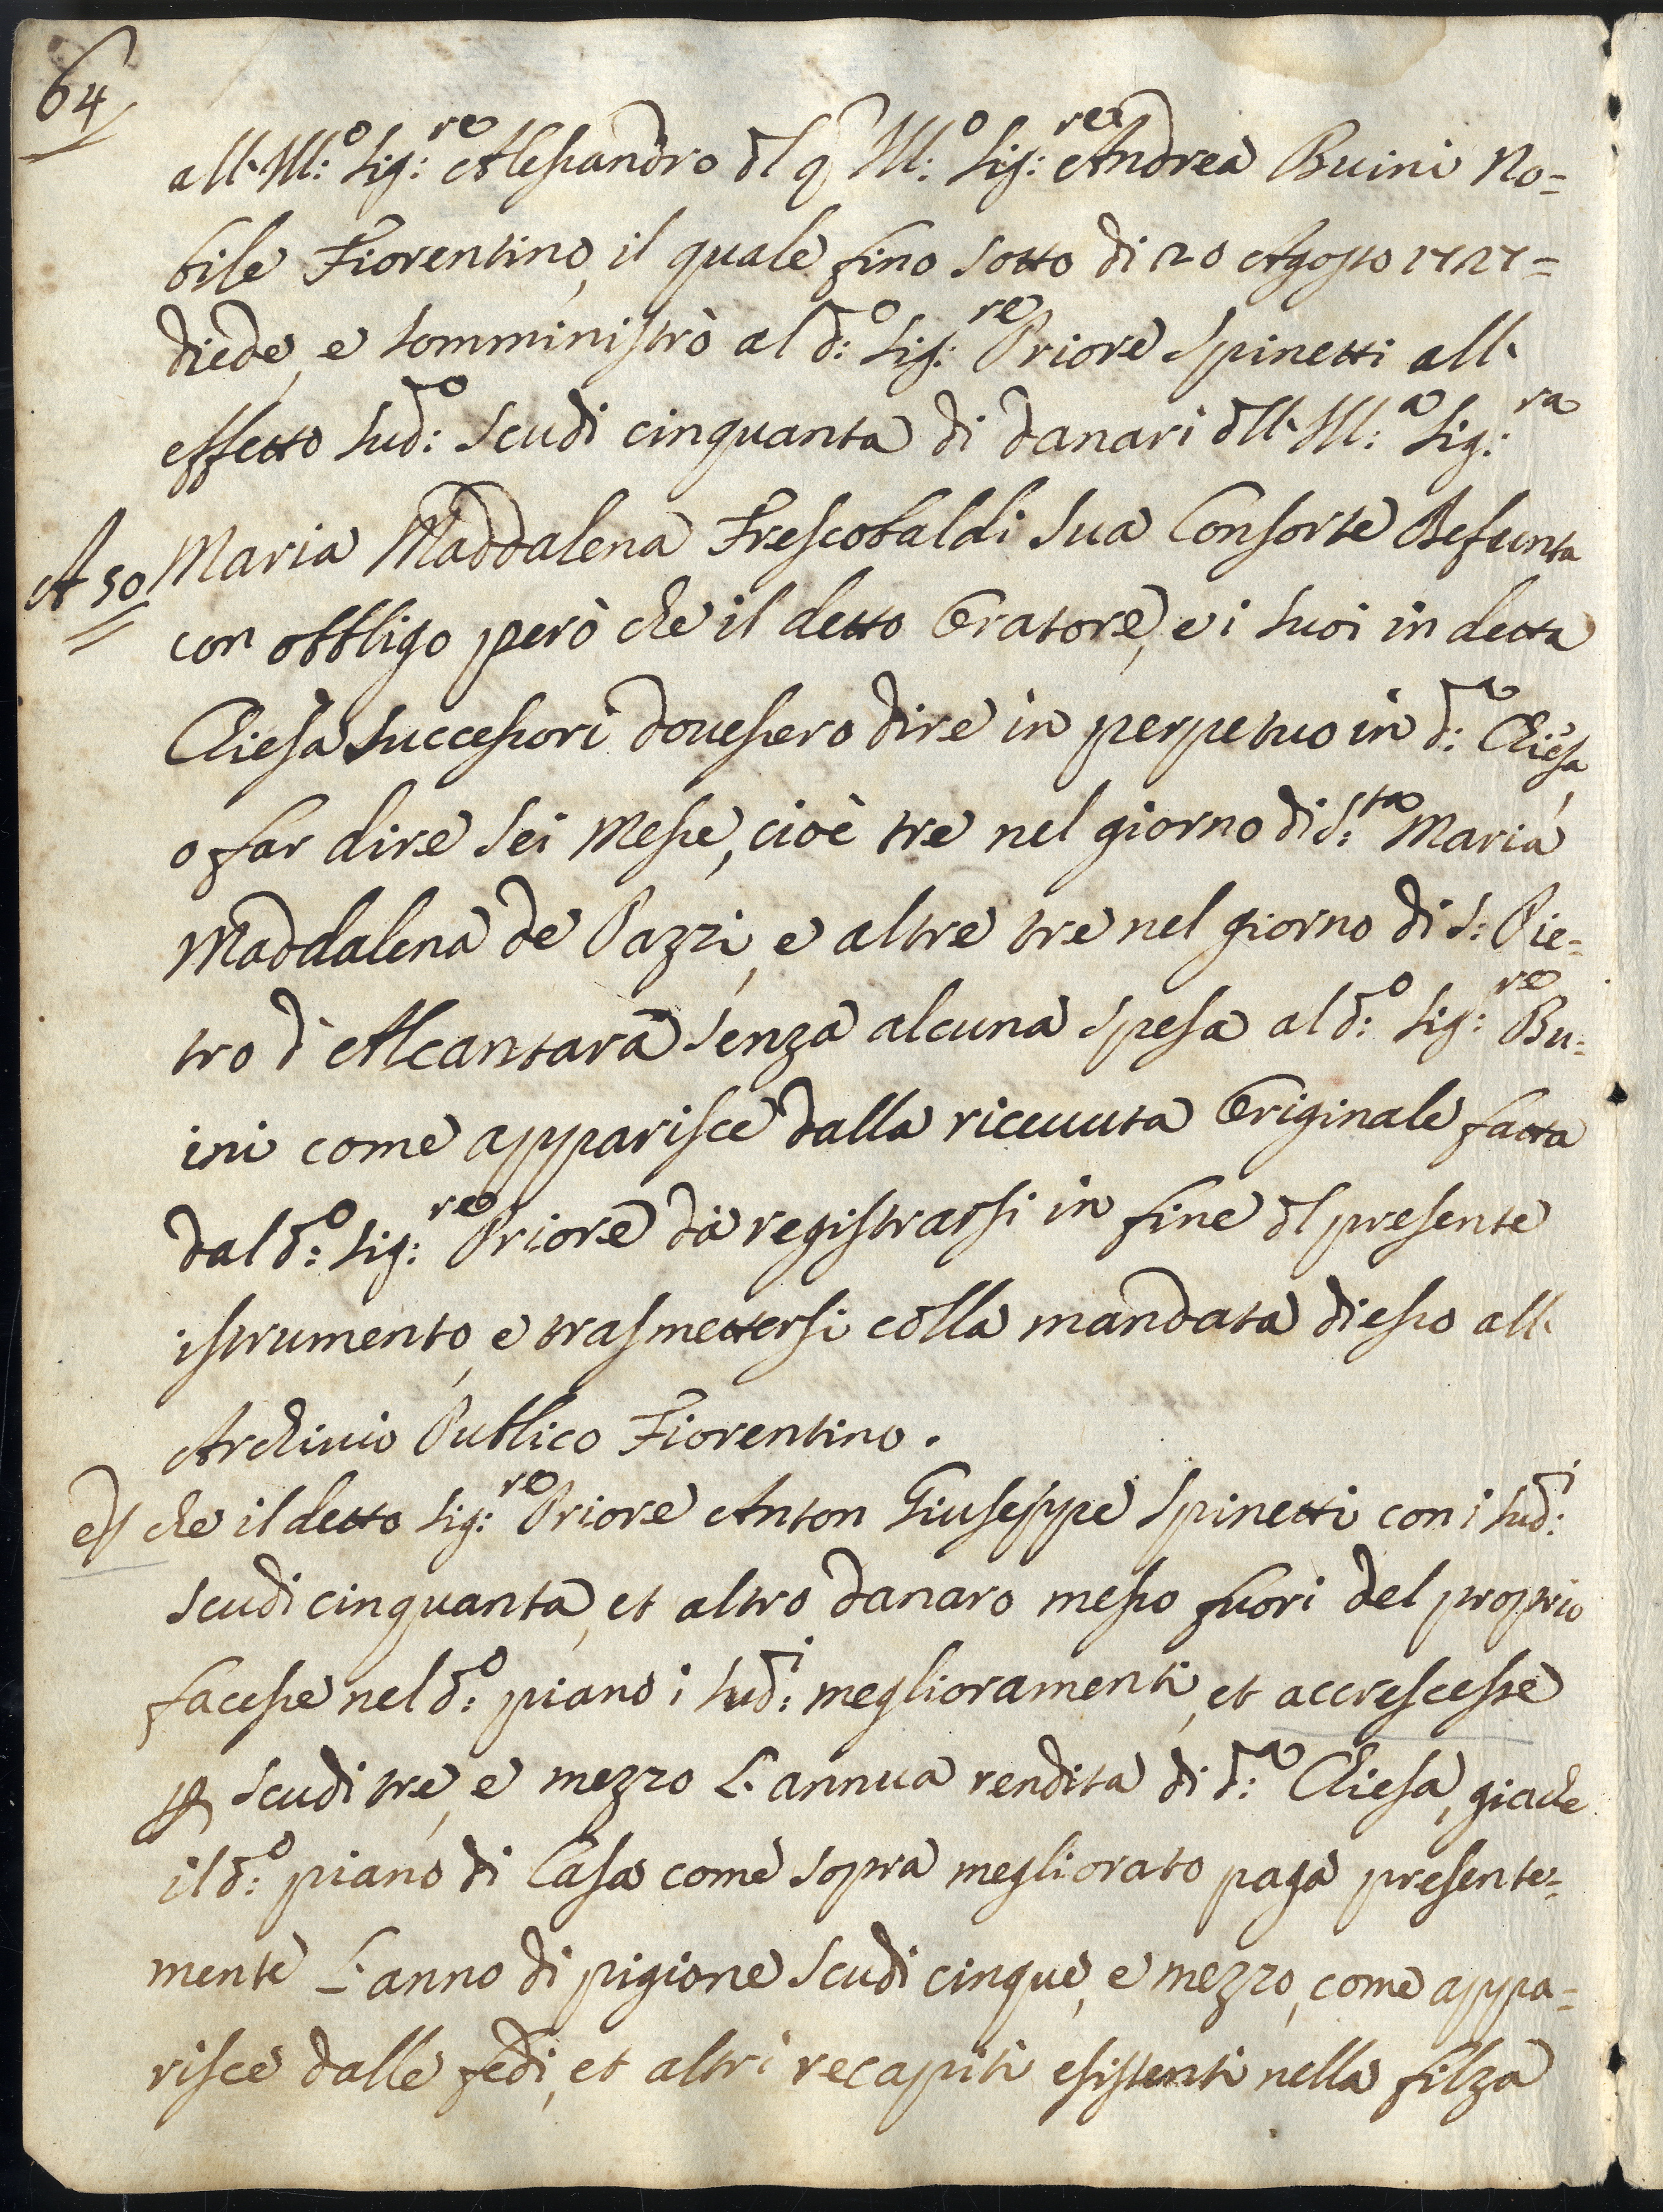 64
all' Ill:o Sig:re Alessandro dl q Ill:o Sig:re Andrea Buini No=
bile Fiorentino, il quale fino sotto di 20 Agosto 1727=
diede, e somministrò al d:o Sig:re Priore Spinetti all'
effetto sud:o scudi cinquanta di danari dll' Ill:a Sig:ra
A 50 Maria Maddalena Frescobaldi sua Consorte Defunta
con obbligo però che il detto Oratore, e i suoi in detta
Chiesa Successori dovessero dire in perpetuo in d:a Chiesa,
o far dire sei Messe, cioè tre nel giorno di S:ta Maria
Maddalena de Pazzi, e altre tre nel giorno di S: Pie=
tro d' Alcantara senza alcuna spesa al d:o Sig:re Bu=
ini come apparisce dalla riceuuta Originale fatta
dal d:o Sig:re Priore da registrarsi in fine dl presente
istrumento, e trasmettersi colla mandata di esso all'
Archiuio Publico Fiorentino.
E che il detto Sig:re Priore Anton Giuseppe Spinetti con i sud:i
scudi cinquanta, et altro danaro messo fuori del proprio
facesse nel d:o piano i sud:i meglioramenti, et accrescesse
p scudi tre, e mezzo l' annua rendita di d:a Chiesa, giache
il d:o piano di Casa come sopra megliorato paga presente=
mente l' anno di pigione scudi cinque, e mezzo, come appa=
risce dalle fedi, et altri recapiti esistenti nella filza